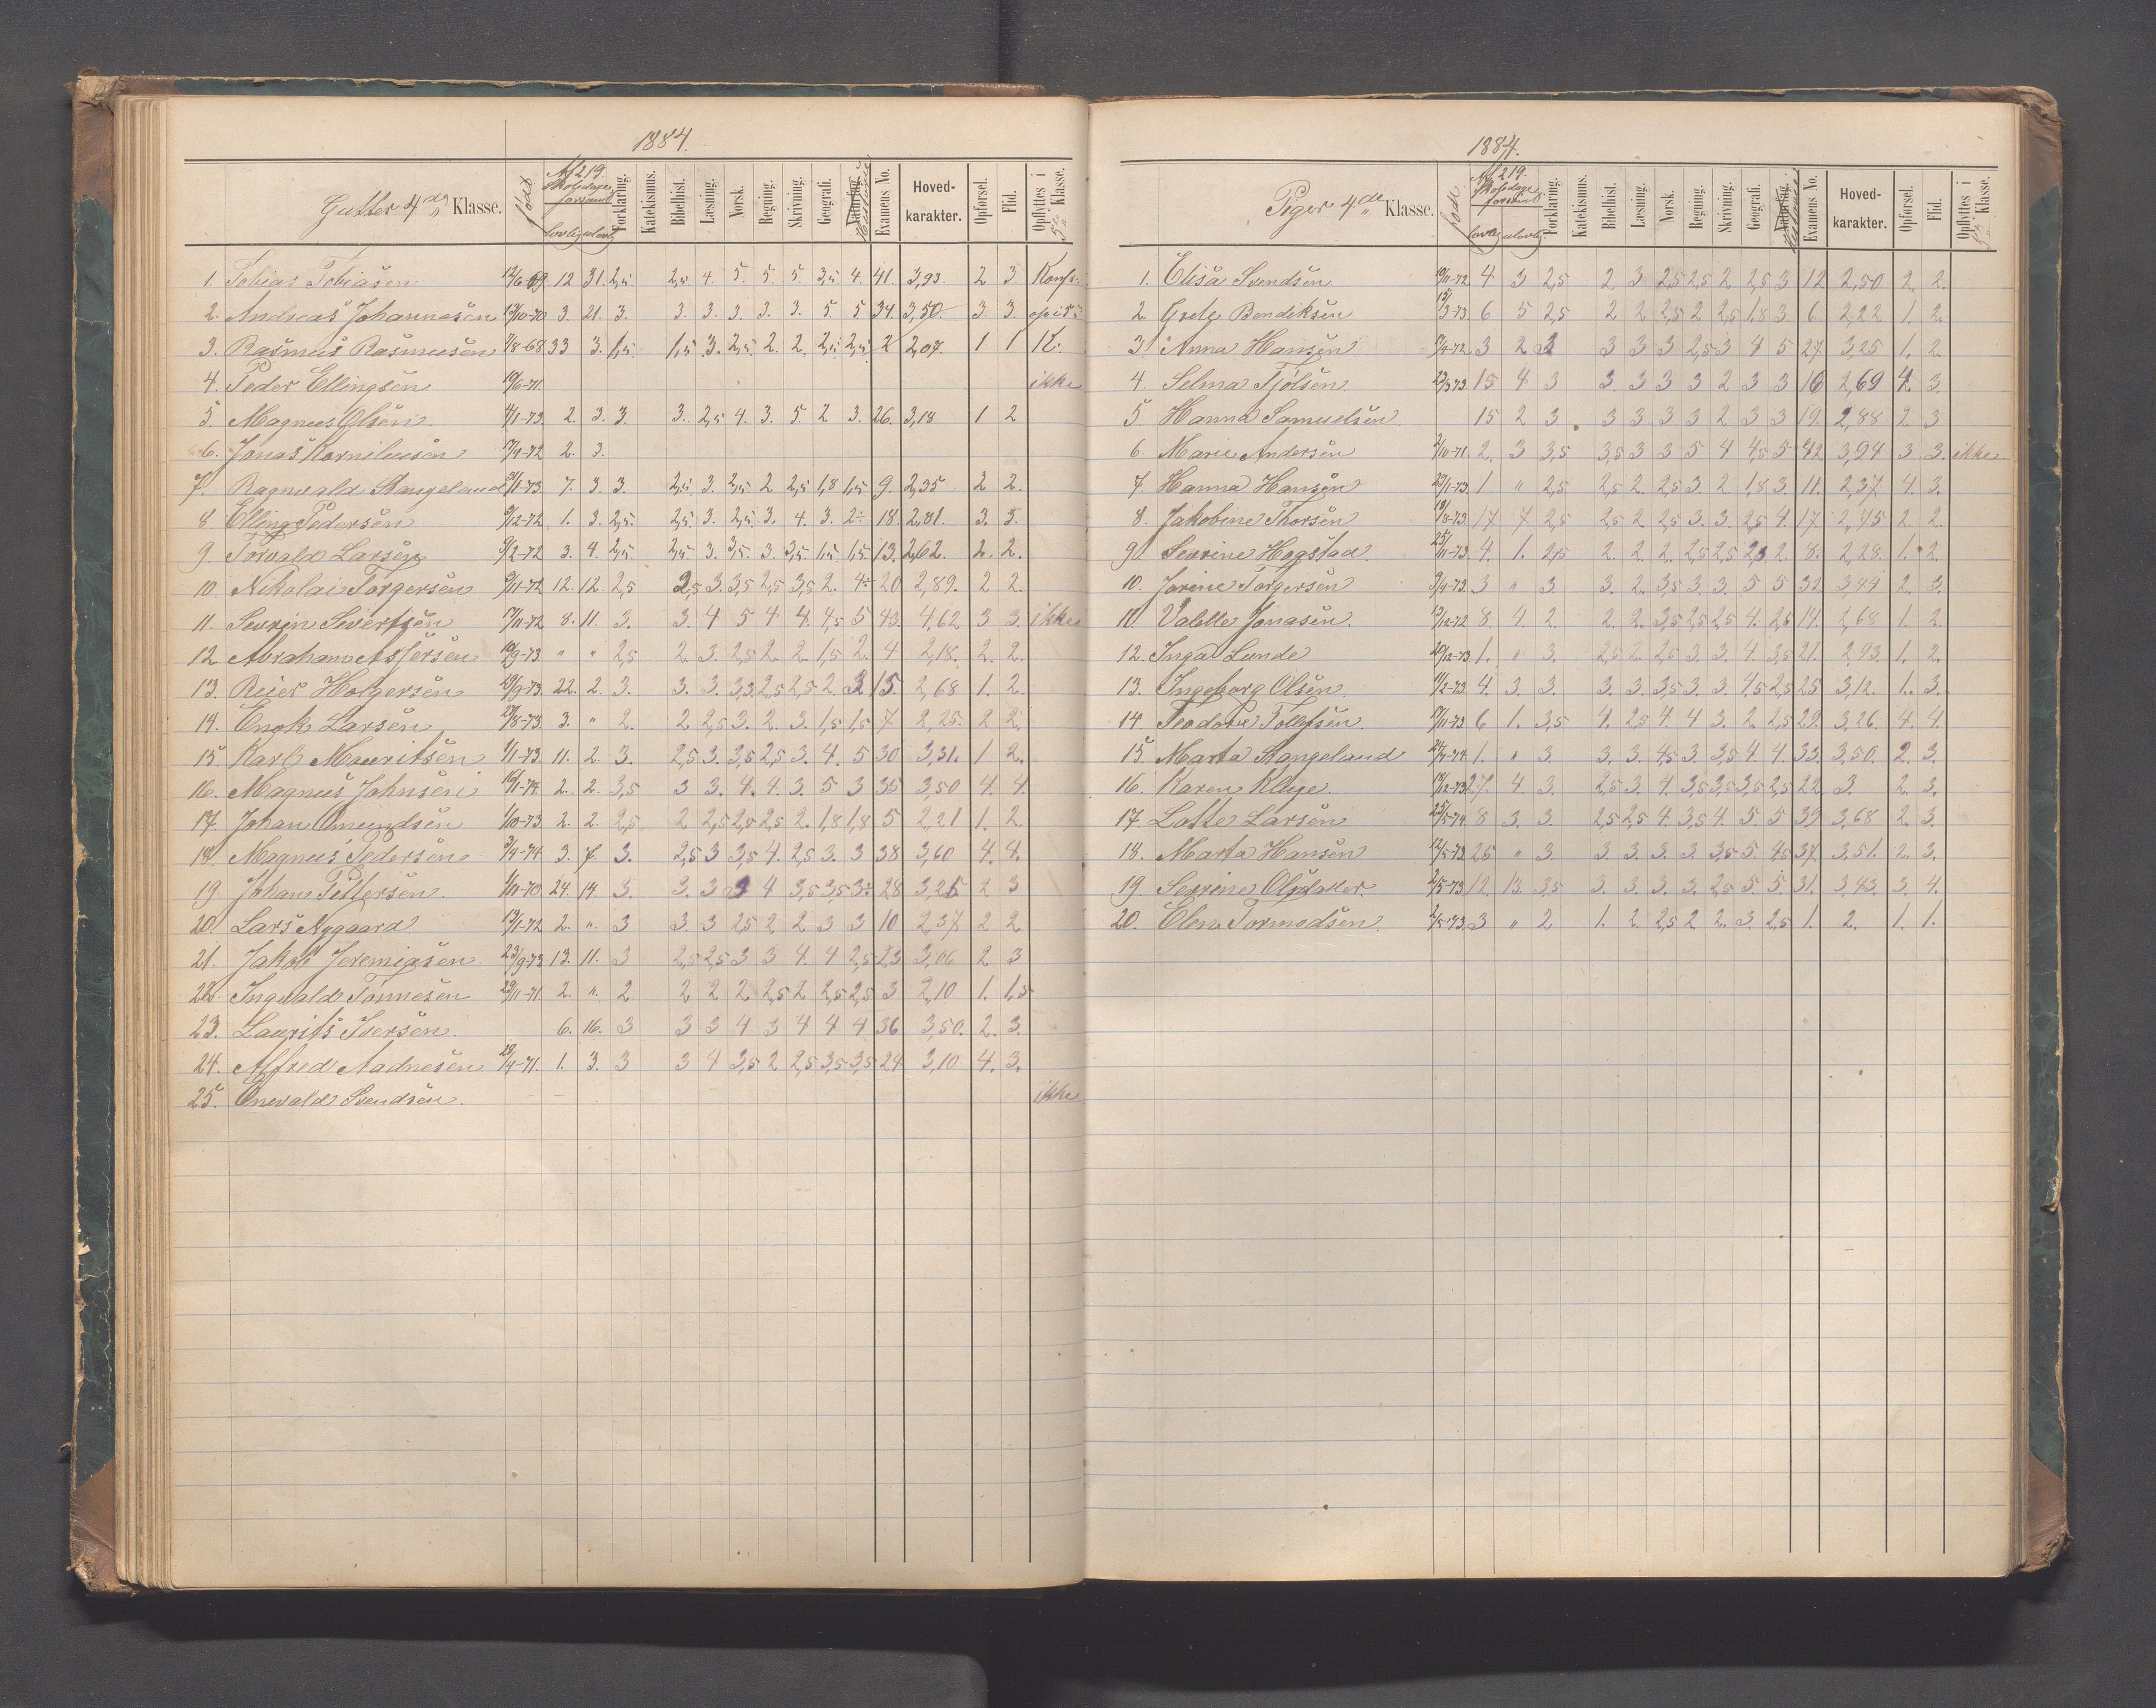 1884.
Gutter 4de Klasse.
født
Af 219.
Skoledage
forsømt
lovlig ulovlig
Forklaring. Katekismus. Bibelhist. Læsning. Norsk. Regning. Skrivning. Geografi. Naturfag. Examens No. Hoved-karakter. Opførsel. Flid. Opflyttes i 5te Klasse.
1. Tobias Tobiasen 12/6 69 12 31. 2,5 2,5 4. 5. 5. 5 3,5 4. 41. 3,93. 2 3 Konf.
2. Andreas Johannesen 13/10-70 3. 21. 3. 3. 3. 3. 3. 3. 5. 5 34. 3,50. 3. 3.
3. Rasmus Rasmussen 1/8-68 33 3. 1,5 1,5 3. 2,5 2. 2. 2,5 2,5 2 2,07. 1 1 K.
4. Peder Ellingsen 19/6-71. ikke
5. Magnus Olsen. 4/1-73. 2. 3. 3. 3. 2,5 4. 3. 5. 2 3. 26. 3,18 1 2
6. Jonas Korneliusen 17/9-72 2. 3.
7. Ragnvald Stangeland 21/11-73. 7. 3. 3. 2,5 3. 2,5 2 2,5 1,8 1,5 9. 2,35 2 2.
8 Elling Pedersen 9/12-72 1. 3. 2,5. 2,5. 3. 2,5. 3. 4. 3. 2÷ 18. 2,81. 3. 3.
9. Torvald Larsen 9/2-72 3. 4. 2,5. 2,5. 3. 3,5. 3. 3,5 1,5 1,5 13. 2,62. 2. 2.
10. Nikolai Torgersen 9/11-72 12. 12. 2,5 2,5 3. 3,5 2,5 3,5 2. 4÷ 20 2,89. 2 2.
11. Sevrin Sivertsen 17/11-72 8. 11. 3. 3. 4 5 4 4. 4,5 5 43. 4,62 3 3. ikke
12 Abraham Asjersen 19/9-73. " " 2,5 2. 3. 2,5 2. 2. 1,5 2. 4 2,18. 2. 2.
13. Reier Holgersen 29/9-73. 22. 2. 3. 3. 3. 3,3. 2,5 2,5 2. 3. 15. 2,68 1. 2.
14. Enok Larsen 29/8-73. 3. " 2. 2 2,5 3. 2. 3. 1,5 1,5 7 2,25. 2 2.
15. Karl Mauritsen 1/11-73. 11. 2. 3. 2,5 3. 3,5 2,5 3. 4. 5 30 3,31. 1 2.
16. Magnus Johnsen 16/1-74. 2. 2. 3,5 3 3. 4. 4. 3. 5 3 35 3,50 4. 4.
17. Johan Omundsen 1/10-73. 2. 2. 2,5 2 2,5 2,5 2,5 2. 1,8 1,8 5 2,21 1. 2.
18. Magnus Pedersen 3/4-74 3. 7. 3. 2,5 3 3,5 4. 2,5 3. 3 38 3,60 4. 4.
19. Johan Pettersen. 1/11-70 24. 14. 3. 3. 3 3 4 3,5 3,5 3÷ 28 3,25 2 3
20. Lars Nygaard 13/1-72 2. " 3 3. 3 2,5 2 2 3 3 10 2,37 2 2
21. Jakob Jeremiasen 23/9-73 13. 11. 3 2,5 2,5 3 3 4. 4 2,5 23 3,06 2 3
22. Ingvald Tønnesen 29/11-71. 2. " 2 2 2 2 2,5 2 2,5 2,5 3 2,10 1. 1,5
23. Laurits Iversen. 6. 16. 3 3 3 4 3 4 4 4 36 3,50. 2. 3.
24. Alfred Aadnesen 29/4-71. 1. 3. 3 3 4 3,5 2 2,5 3,5 3,5 24 3,10 4. 3.
25. Onevald Svendsen. ikke
1884.
Piger 4de Klasse.
født
Af 219.
Skoledage
forsømt
lovlig ulovlig
Forklaring. Katekismus. Bibelhist. Læsning. Norsk. Regning. Skrivning. Geografi. Naturfag. Examens No. Hoved-karakter. Opførsel. Flid. Opflyttes i 5te Klasse.
1. Elisa Svendsen 10/11-72 4 3 2,5 2 3 2,5 2,5 2 2,5 3 12 2,50 2. 2.
2. Grete Bendiksen 15/3-73 6 5 2,5 2 2 2,5 2 2,5 1,8 3 6 2,22 1. 2.
3. Anna Hansen 7/4-72. 3 2 3 3 3 3 2,5 3 4 5 27 3,25 1. 2.
4. Selma Fjølsen 23/3 73. 15 4 3 3 3 3 3 2 3 3 16 2,69 4. 3.
5. Hanna Samuelsen. 15 2 3 3 3 3 3 2 3 3 19. 2,88 2 3
6. Marie Andersen 2/10-71. 2. 3 3,5 3,5 3 3 5 4 4,5 5 42 3,94 3 3. ikke
7. Hanna Hansen 23/1-73. 1 " 2,5 2,5 2. 2,5 3. 2. 1,8 3. 11. 2,37. 4. 3.
8. Jakobine Thorsen 19/8-73 17 7 2,5 2,5 2 2,5 3. 3. 2,5 4. 17 2,75 2. 2.
9. Sevrine Hogstad. 25/11-73. 4. 1. 2,5 2. 2. 2. 2,5 2,5 2,3 2. 8. 2,28. 1. 2.
10. Jorine Torgersen 3/4-73. 3 " 3. 3. 2. 3,5 3. 3. 5 5 32 3,44 2. 3.
11 Valette Jonasen. 13/12-72 8 4 2. 2. 2. 3,5 2,5 2,5 4. 2,5 14. 2,68 1. 2.
12. Inga Lunde 20/12-73. 1. " 3. 2,5 2. 2,5 3. 3. 4. 3,5 21. 2,93. 1. 2.
13. Ingeborg Olsen. 11/2-73. 4. 3. 3. 3. 3. 3,5 3. 3. 4,5 2,5 25 3,12. 1. 3.
14 Teodore Tollefsen. 7/11-73 6 1. 3,5 4. 2,5 4. 4 3. 2. 2,5 29. 3,26. 4. 4.
15. Marta Stangeland 1. " 3 3. 3. 4,5 3. 3,5 4. 4. 33. 3,50. 2. 3.
16. Karen Kluge. 17/12-73 27. 4. 3. 2,5 3. 4. 3,5 3,5 3,5 2,5 22 3. 2. 3.
17. Lotte Larsen 25/5-74. 8 3. 3. 2,5 2,5 4. 3,5 4. 5. 5 39 3,68 2. 3.
18. Marta Hansen 12/5-73. 26 " 3. 3. 3. 3. 3. 3,5 5. 4,5 37. 3,51. 2. 3.
19. Sevrine 2/5-73 12. 13. 3,5 3. 3. 3. 3. 2,5 5. 5. 31. 3,43. 3. 4.
20. Elen Tormodsen. 2/5-73. 3 " 2 1. 2 2,5 2 2. 3. 2,5 1. 2. 1. 1.